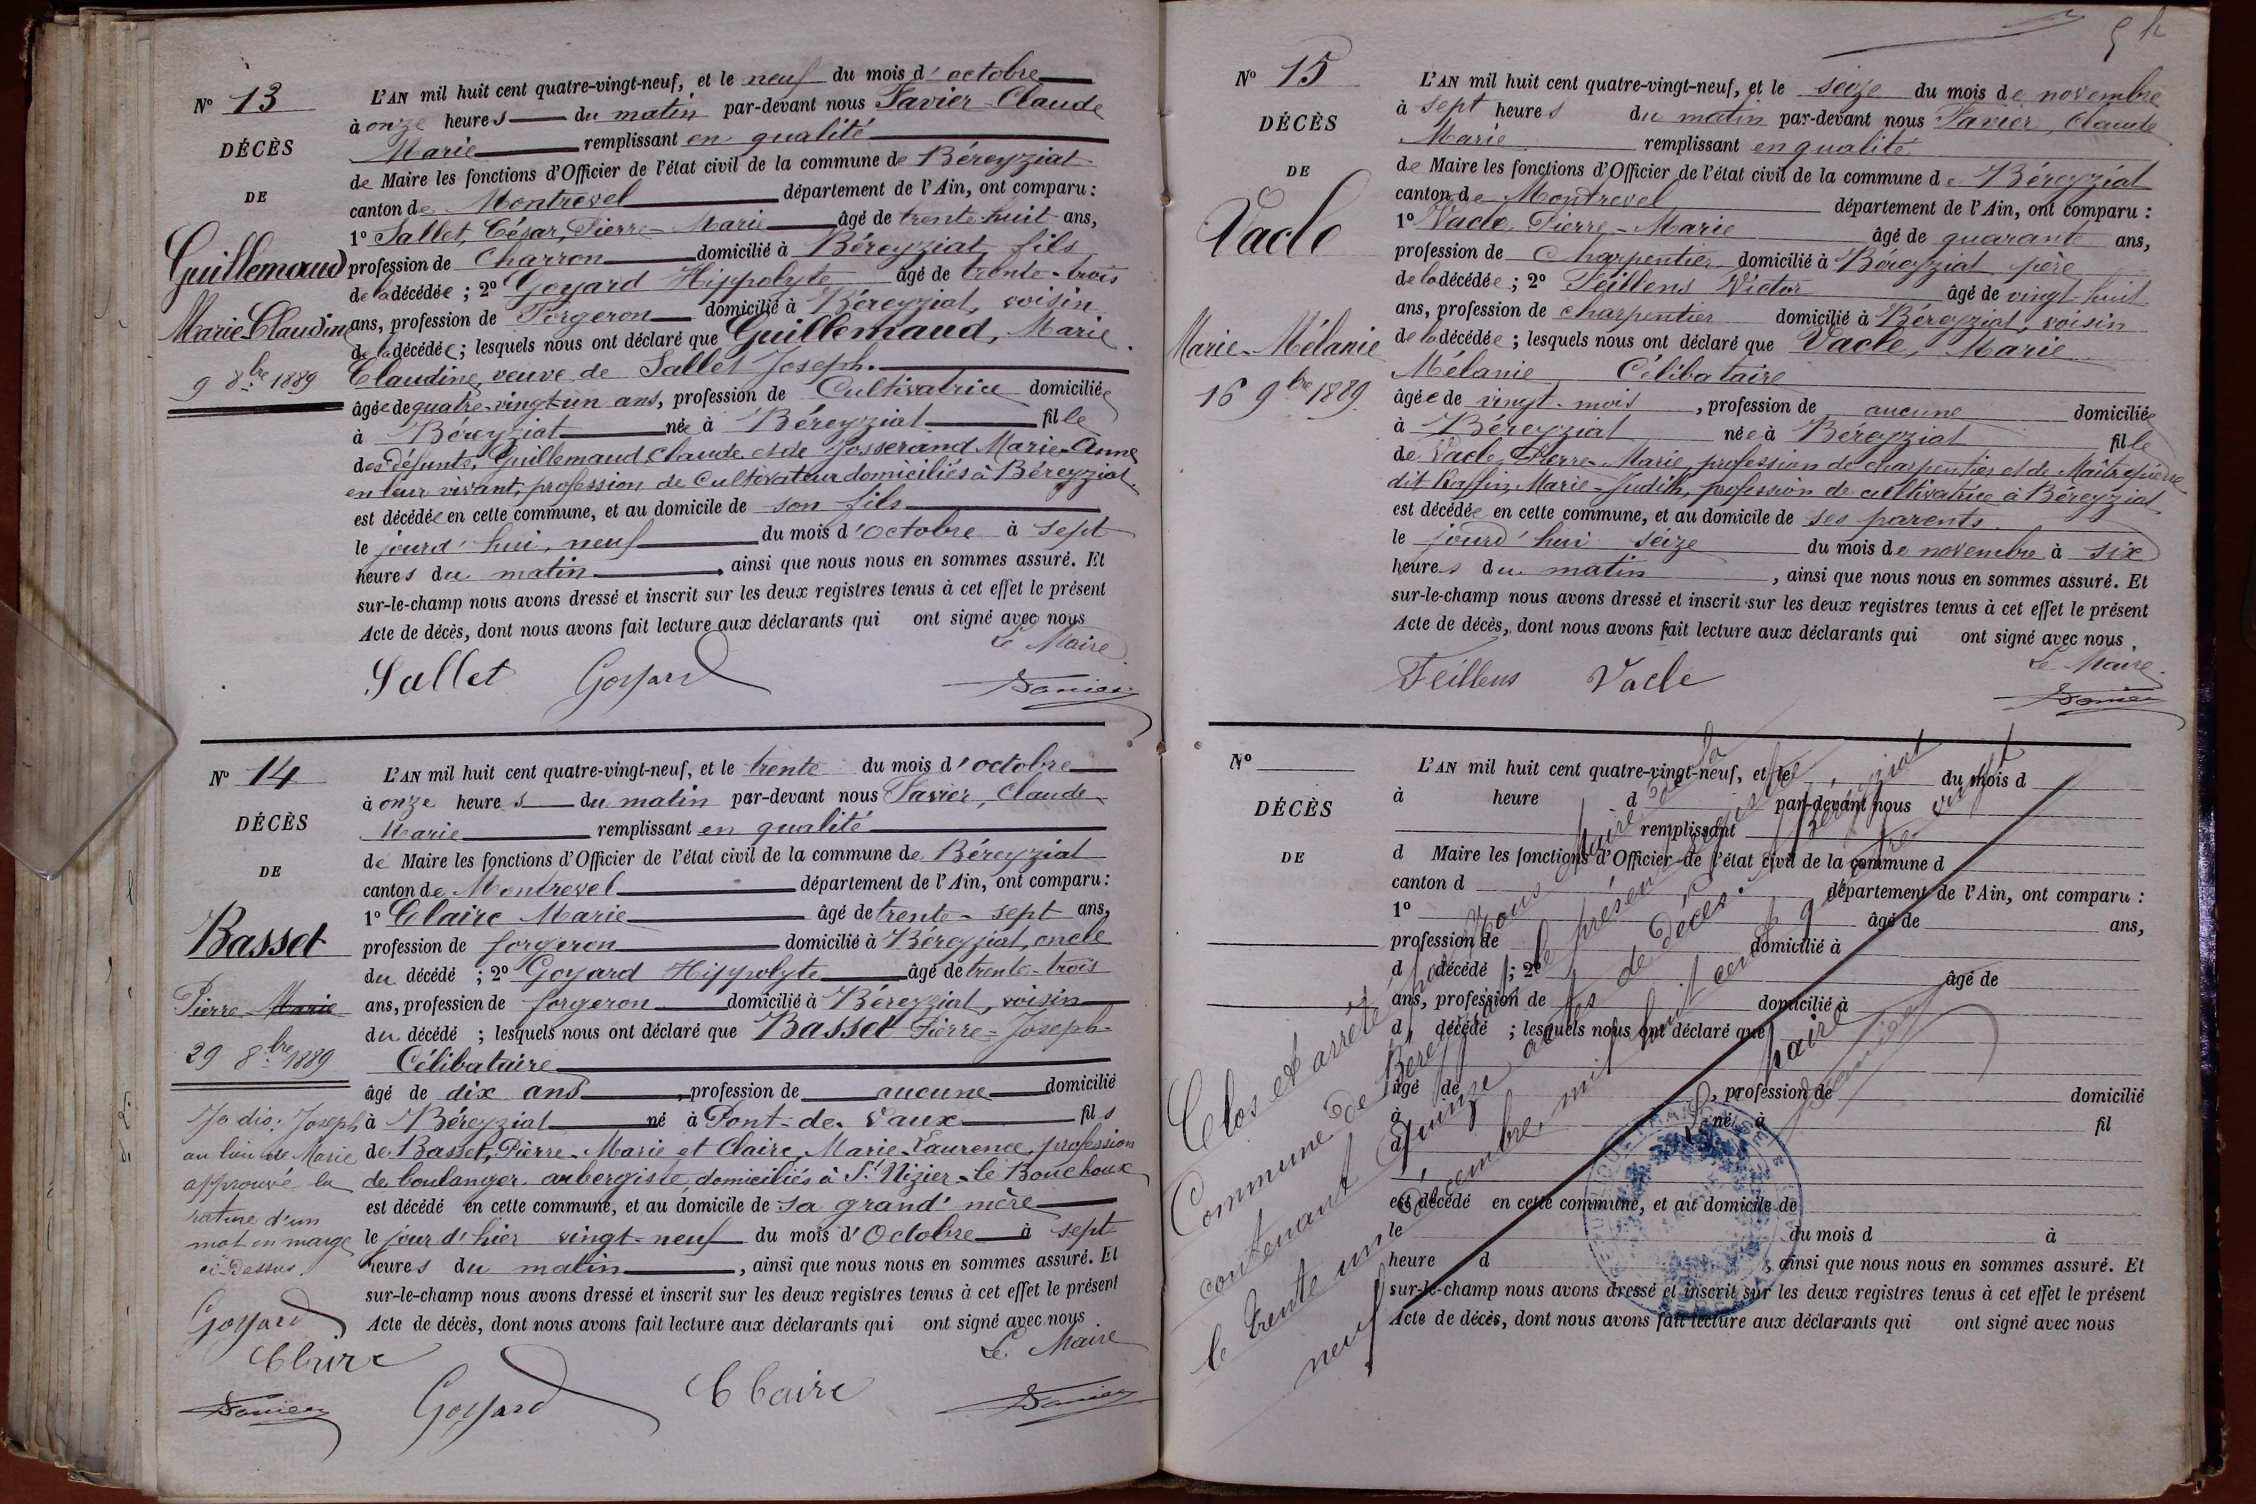 N° 13
DÉCÈS
DE
Guillemaud
Marie Claudine
9 8bre 1889
L'AN mil huit cent quatre-vingt-neuf, et le neuf du mois d'octobre
à onze heures du matin par-devant nous Favier Claude
Marie remplissant en qualité
de Maire les fonctions d'Officier de l'état civil de la commune de Béreyziat
canton de Montrevel département de l'Ain, ont comparu :
1° Sallet, César, Pierre-Marie âgé de trente-huit ans,
profession de Charron domicilié à Béreyziat, fils
de la décédée ; 2° Goyard Hippolyte âgé de trente-trois
ans, profession de Forgeron domicilié à Béreyziat, voisin
de la décédée ; lesquels nous ont déclaré que Guillemaud, Marie
Claudine, veuve de Sallet Joseph.
âgée de quatre-vingt-un ans, profession de Cultivatrice domiciliée
à Béreyziat née à Béreyziat fille
des défunts, Guillemaud Claude et de Josserand Marie-Anne
en leur vivant, profession de Cultivateur domiciliés à Béreyziat.
est décédée en cette commune, et au domicile de son fils
le jourd'hui, neuf du mois d'Octobre à sept
heures du matin, ainsi que nous nous en sommes assuré. Et
sur-le-champ nous avons dressé et inscrit sur les deux registres tenus à cet effet le présent
Acte de décès, dont nous avons fait lecture aux déclarants qui ont signé avec nous
Le Maire
Sallet Goyard Favier
N° 14
DÉCÈS
DE
Basset
Pierre Marie
29 8bre 1889
Je dis: Joseph
au lieu de Marie
approuvé la
rature d'un
mot en marge
ci-dessus.
Goyard
Claire
Favier
L'AN mil huit cent quatre-vingt-neuf, et le trente du mois d'octobre
à onze heures du matin par-devant nous Favier, Claude
Marie remplissant en qualité
de Maire les fonctions d'Officier de l'état civil de la commune de Béreyziat
canton de Montrevel département de l'Ain, ont comparu :
1° Claire Marie âgé de trente-sept ans,
profession de forgeron domicilié à Béreyziat, oncle
du décédé ; 2° Goyard Hippolyte âgé de trente-trois
ans, profession de forgeron domicilié à Béreyziat, voisin
du décédé ; lesquels nous ont déclaré que Basset Pierre-Joseph
Célibataire
âgé de dix ans, profession de aucune domicilié
à Béreyziat né à Pont-de-Vaux fils
de Basset, Pierre-Marie et Claire, Marie-Laurence, profession
de boulanger aubergiste, domiciliés à St Nizier-le Bouchoux
est décédé en cette commune, et au domicile de sa grand'mère
le jour d'hier vingt-neuf du mois d'Octobre à sept
heures du matin, ainsi que nous nous en sommes assuré. Et
sur-le-champ nous avons dressé et inscrit sur les deux registres tenus à cet effet le présent
Acte de décès, dont nous avons fait lecture aux déclarants qui ont signé avec nous
Le Maire
Goyard Claire Favier
N° 15
DÉCÈS
DE
Vacle
Marie-Mélanie
16 9bre 1889
L'AN mil huit cent quatre-vingt-neuf, et le seize du mois de novembre
à sept heures du matin par-devant nous Favier, Claude
Marie remplissant en qualité
de Maire les fonctions d'Officier de l'état civil de la commune de Béreyziat
canton de Montrevel département de l'Ain, ont comparu :
1° Vacle, Pierre-Marie âgé de quarante ans,
profession de Charpentier domicilié à Béreyziat, père
de la décédée ; 2° Feillens Victor âgé de vingt-huit
ans, profession de charpentier domicilié à Béreyziat, voisin
de la décédée ; lesquels nous ont déclaré que Vacle, Marie
Mélanie Célibataire
âgée de vingt-mois, profession de aucune domiciliée
à Béreyziat née à Béreyziat fille
de Vacle, Pierre-Marie, profession de charpentier et de Maîtrepierre
dit Raffin, Marie-Judith, profession de cultivatrice à Béreyziat
est décédée en cette commune, et au domicile de ses parents.
le jourd'hui seize du mois de novembre à six
heures du matin, ainsi que nous nous en sommes assuré. Et
sur-le-champ nous avons dressé et inscrit sur les deux registres tenus à cet effet le présent
Acte de décès, dont nous avons fait lecture aux déclarants qui ont signé avec nous.
Le Maire
Feillens Vacle Favier
N°
DÉCÈS
DE
L'AN mil huit cent quatre-vingt-neuf, et le du mois d
à heure d par-devant nous
remplissant
d Maire les fonctions d'Officier de l'état civil de la commune d
canton d département de l'Ain, ont comparu :
1° âgé de ans,
profession de domicilié à
d décédé ; 2° âgé de
ans, profession de domicilié à
d décédé ; lesquels nous ont déclaré que
âgé de , profession de domicilié
à né à fil
d
est décédé en cette commune, et au domicile de
le du mois d à
heure d , ainsi que nous nous en sommes assuré. Et
sur-le-champ nous avons dressé et inscrit sur les deux registres tenus à cet effet le présent
Acte de décès, dont nous avons fait lecture aux déclarants qui ont signé avec nous
Clos et arrêté par nous Maire de la
Commune de Béreyziat, le présent registre
contenant quinze actes de décès. Béreyziat
le trente un décembre mil huit cent quatre vingt
neuf
Le Maire
Favier